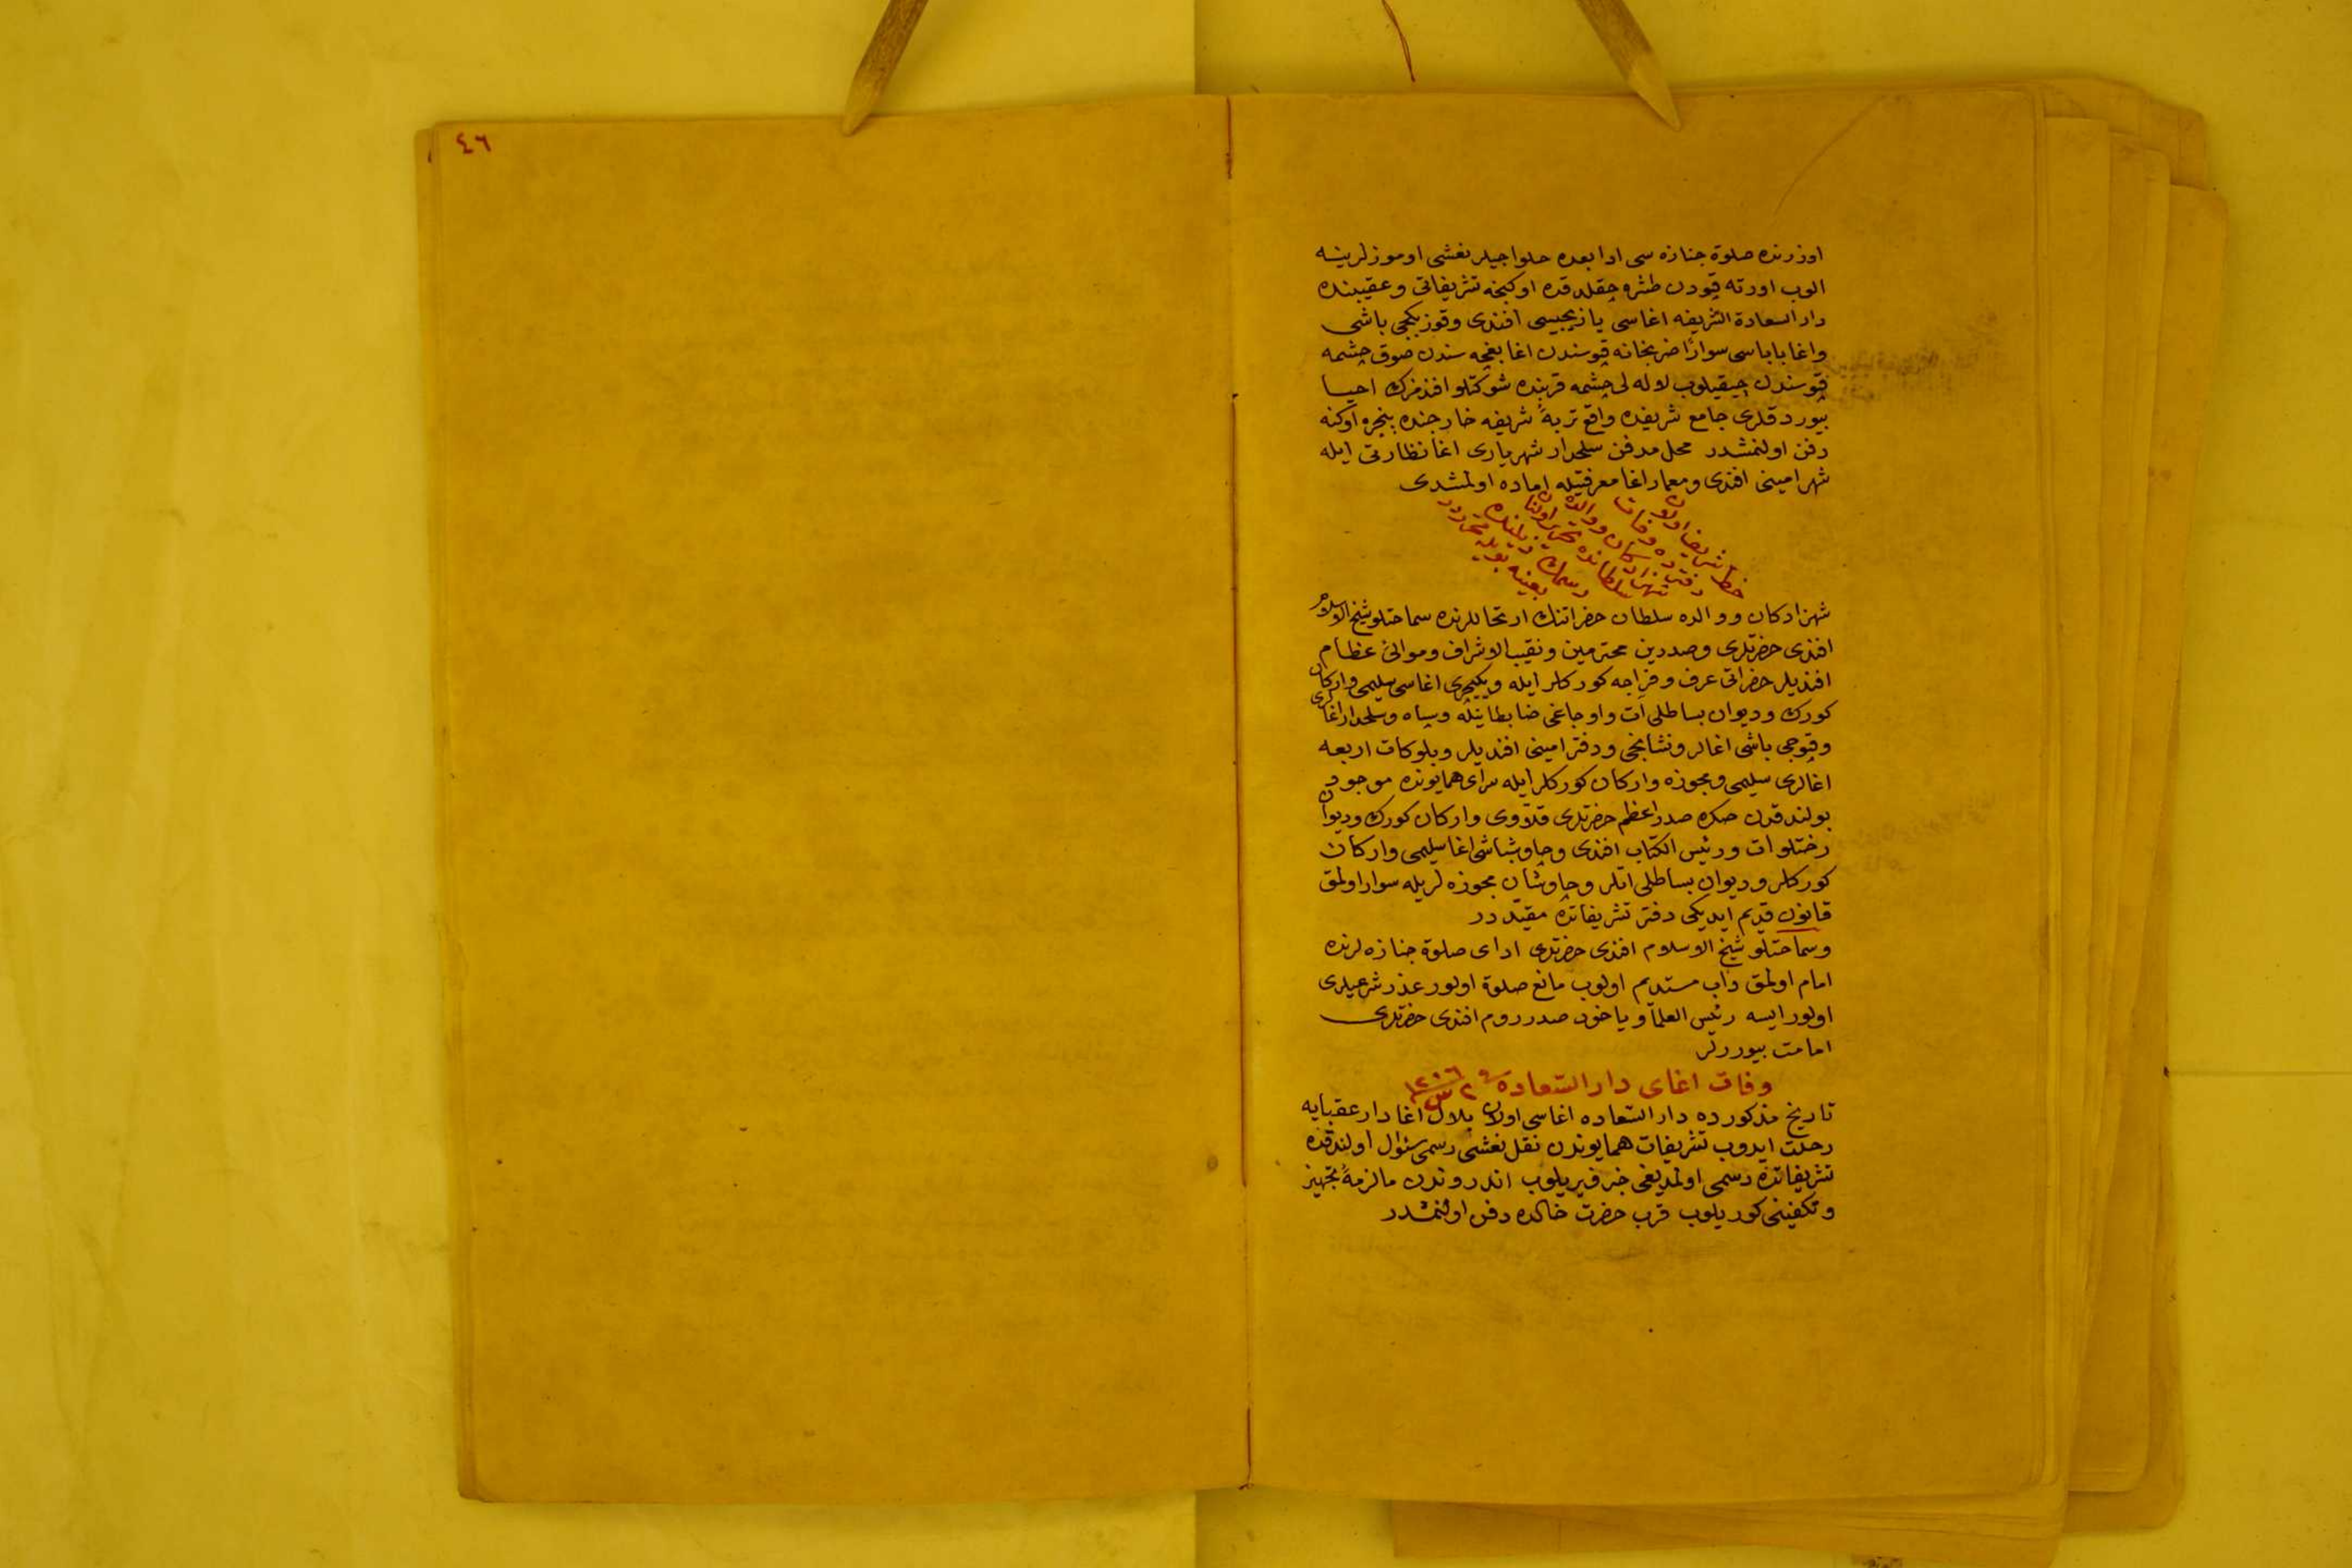 ٤٦
اوزرنده صلوة جنازه سی ادا بعده حلواجیلر نعشی اوموزلرینه
الوب اورته قپودن طشره چقلدقده اوکنجه تشریفاتی وعقیبنده
دار السعادة الشریفه اغاسی یازیجیسی افندی وقوز بکجی باشی
واغا باباسی سوارًا ضربخانه قپوسندن اغا بغچه سندن صوق چشمه
قپوسندن چیقیلوب لوله لی چشمه قربنده شوکتلو افندمزك احیا
بیوردقلری جامع شریفده واقع تربهٔ شریفه خارجنده پنجره اوکنه
دفن اولنمشدر محل مدفن سلحدار شهریاری اغا نظارتی ایله
شهر امینی افندی ومعمار اغا معرفتیله اماده اولمشدی
خط شریف اولان
دفترده وفات
شهزادکان ووالده
سلطانده تحریر اولنان
رسمك ذیلنده
بعینه بویله محرردر
شهزادکان ووالده سلطان حضراتنك ارتحاللرنده سماحتلو شیخ الاسلام
افندی حضرتلری وصدرین محترمین ونقیب الاشراف وموالئ عظام
افندیلر حضراتی عرف وفراجه کورکلر ایله ویکیچری اغاسی سلیمی وارکان
کورك ودیوان بساطلی آت واوجاغی ضابطانیله وسپاه وسلحدار اغالری
وقپوجی باشی اغالر ونشانجی ودفتر امینی افندیلر وبلوکات اربعه
اغالری سلیمی ومجوزه وارکان کورکلر ایله سرای همایونده موجود
بولندقدن صکره صدر اعظم حضرتلری قلاوی وارکان کورك ودیوان
رختلو ات ورئیس الکتاب افندی وچاوشباشی اغا سلیمی وارکان
کورکلر ودیوان بساطلی اتلر وچاوشان مجوزه لریله سوار اولمق
قانون قدیم ایدیکی دفتر تشریفاتده مقیّددر
وسماحتلو شیخ الاسلام افندی حضرتلری ادای صلوة جنازه لرنده
امام اولمق داب مستدیم اولوب مانع صلوة اولور عذر شرعیلری
اولور ایسه رئیس العلما ویاخود صدر روم افندی حضرتلری
امامت بیوررلر
وفات اغای دار السعاده فی ٢ س ١٢٠٦
تاریخ مذکورده دار السعاده اغاسی اولان بلال اغا دار عقبایه
رحلت ایدوب تشریفات همایوندن نقل نعشی رسمی سئوال اولندقده
تشریفاتده رسمی اولمدیغی خبر ویریلوب اندروندن مالزمهٔ تجهیز
وتکفینی کوریلوب قرب حضرت خالده دفن اولنمشدر